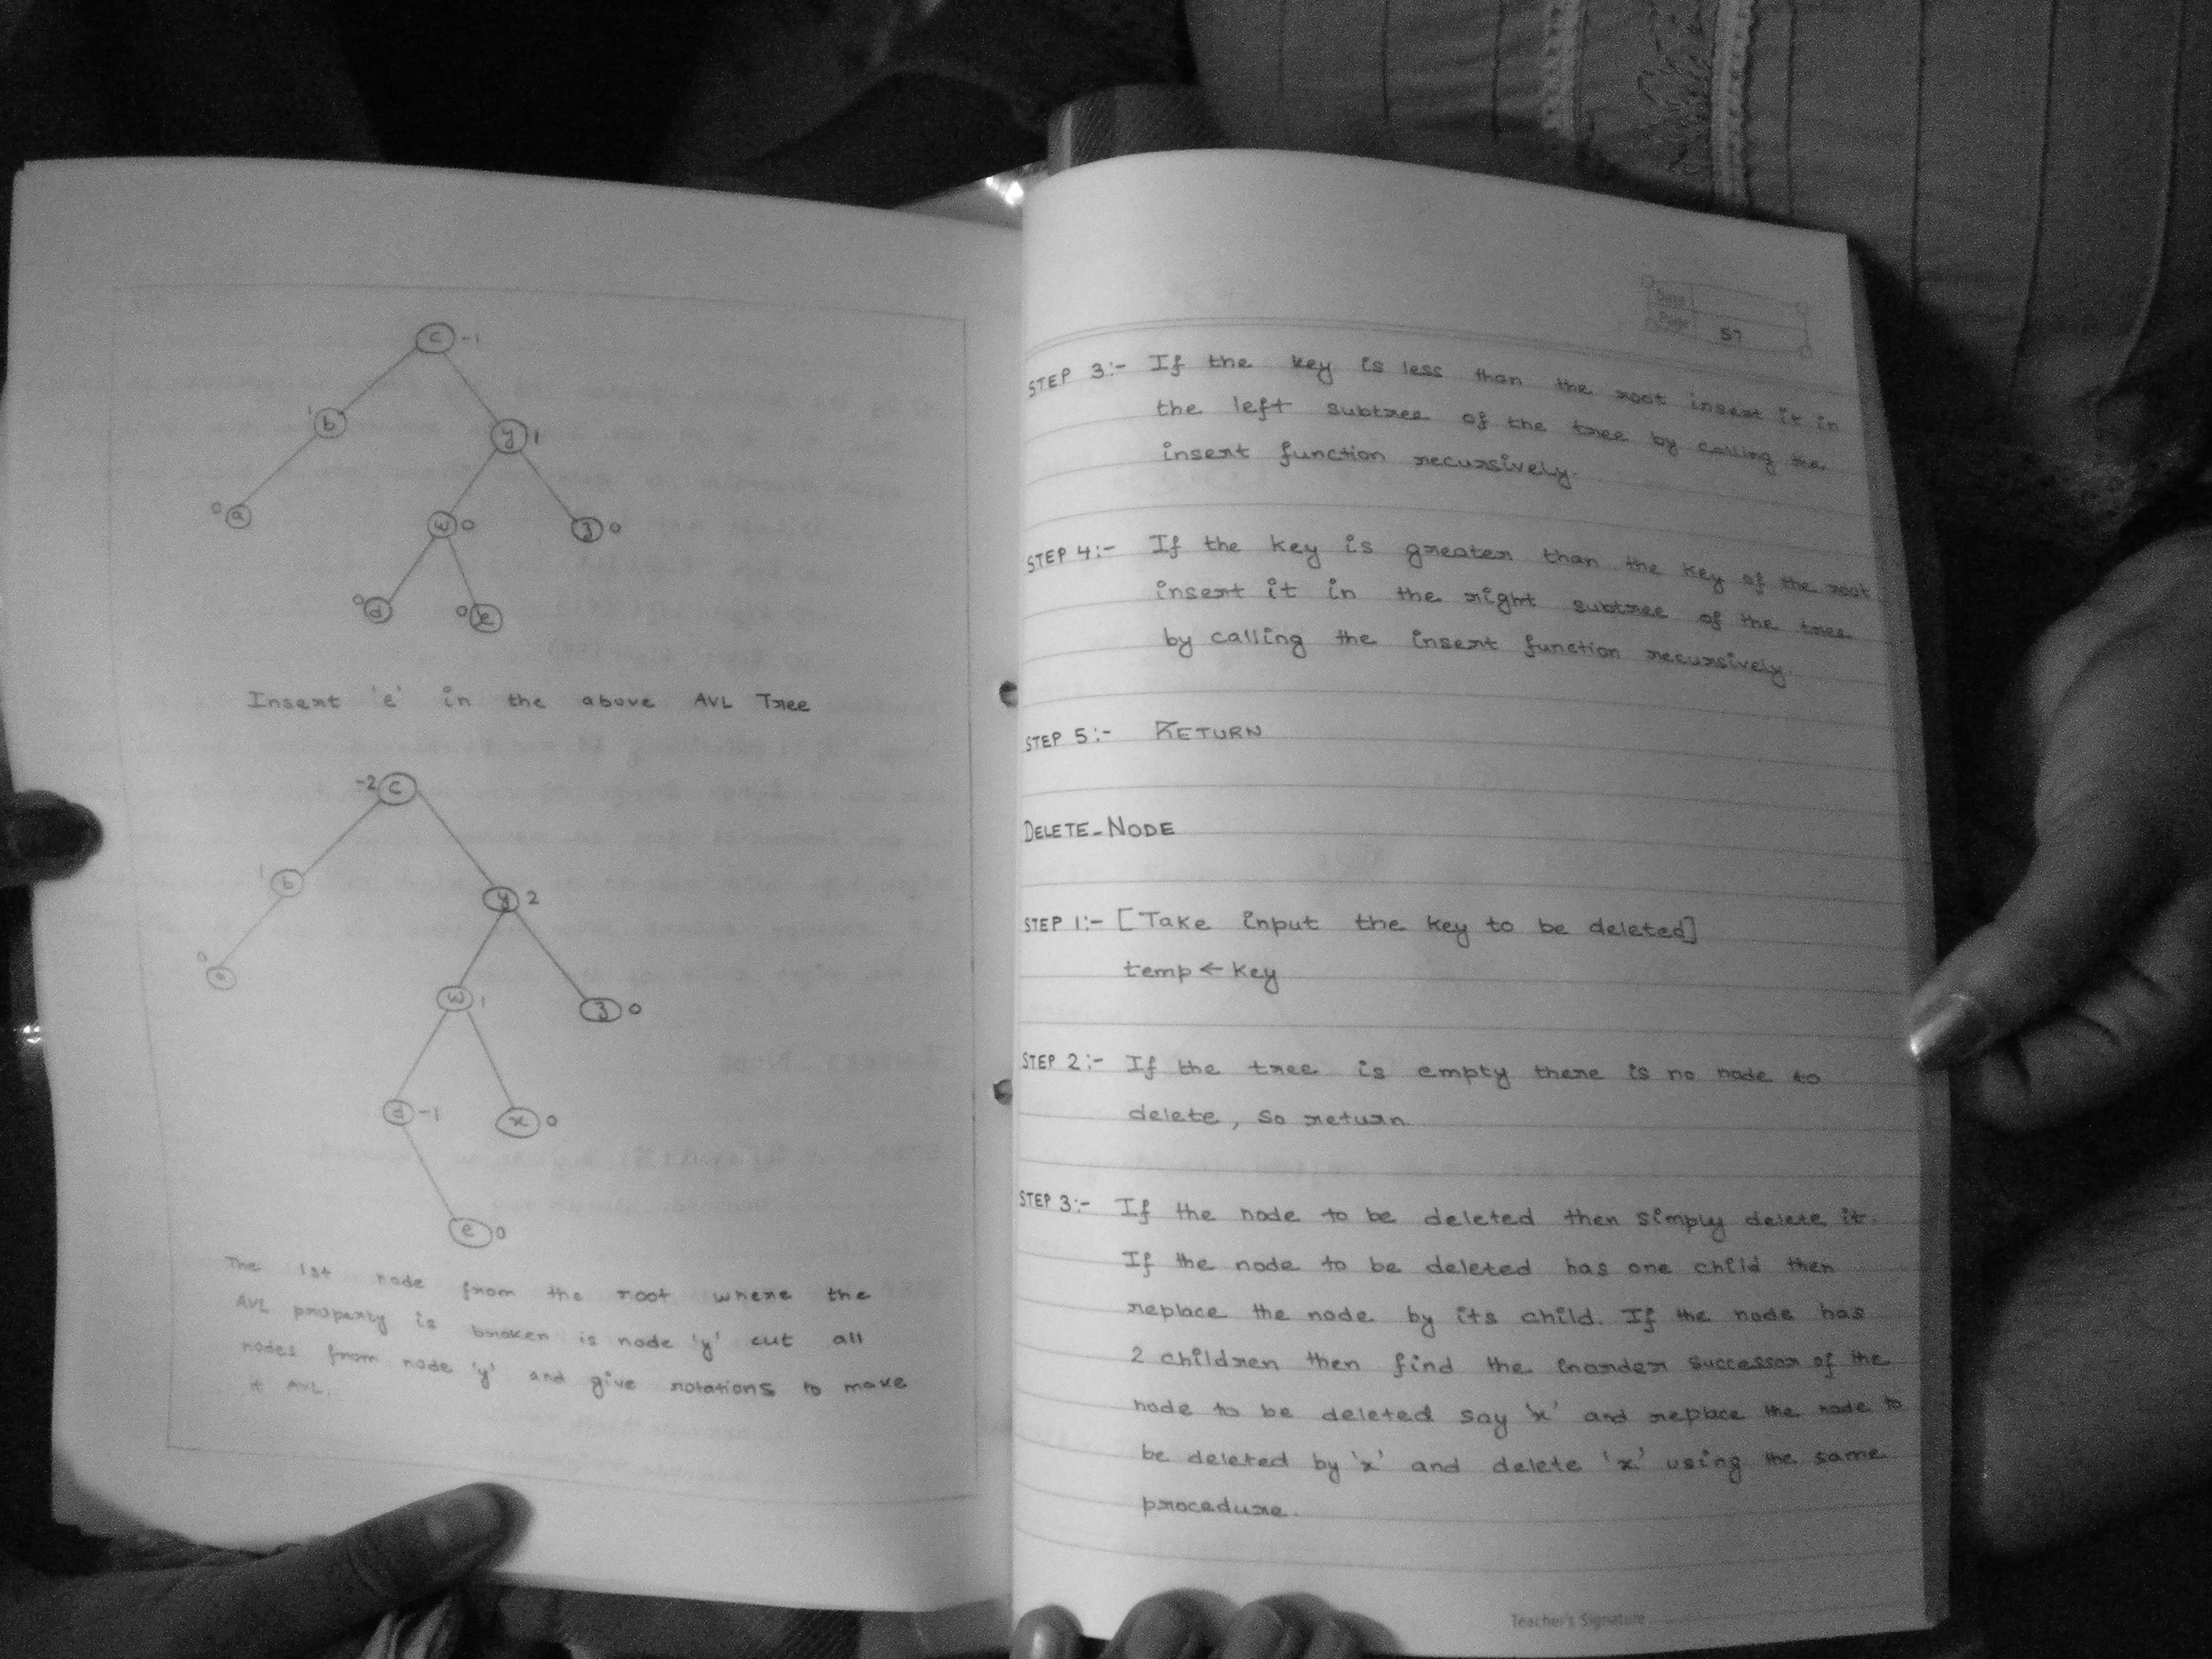 c -1
1 b
y 1
0 a
w 0
z 0
0 d
0
Insert 'e' in the above AVL Tree
-2 c
1 b
y 2
0
w 1
z 0
d -1
x 0
e 0
The 1st node from the root where the
AVL property is broken is node 'y' cut all
nodes from node 'y' and give rotations to make
it AVL.
Date
Page 57
STEP 3:- If the key is less than the root insert it in
the left subtree of the tree by calling the
insert function recursively.
STEP 4:- If the key is greater than the key of the root
insert it in the right subtree of the tree
by calling the insert function recursively.
STEP 5:- RETURN
DELETE_NODE
STEP 1:- [Take input the key to be deleted]
temp ← key
STEP 2:- If the tree is empty there is no node to
delete, so return.
STEP 3:- If the node to be deleted then simply delete it.
If the node to be deleted has one child then
replace the node by its child. If the node has
2 children then find the inorder successor of the
node to be deleted say 'x' and replace the node to
be deleted by 'x' and delete 'x' using the same
procedure.
Teacher's Signature